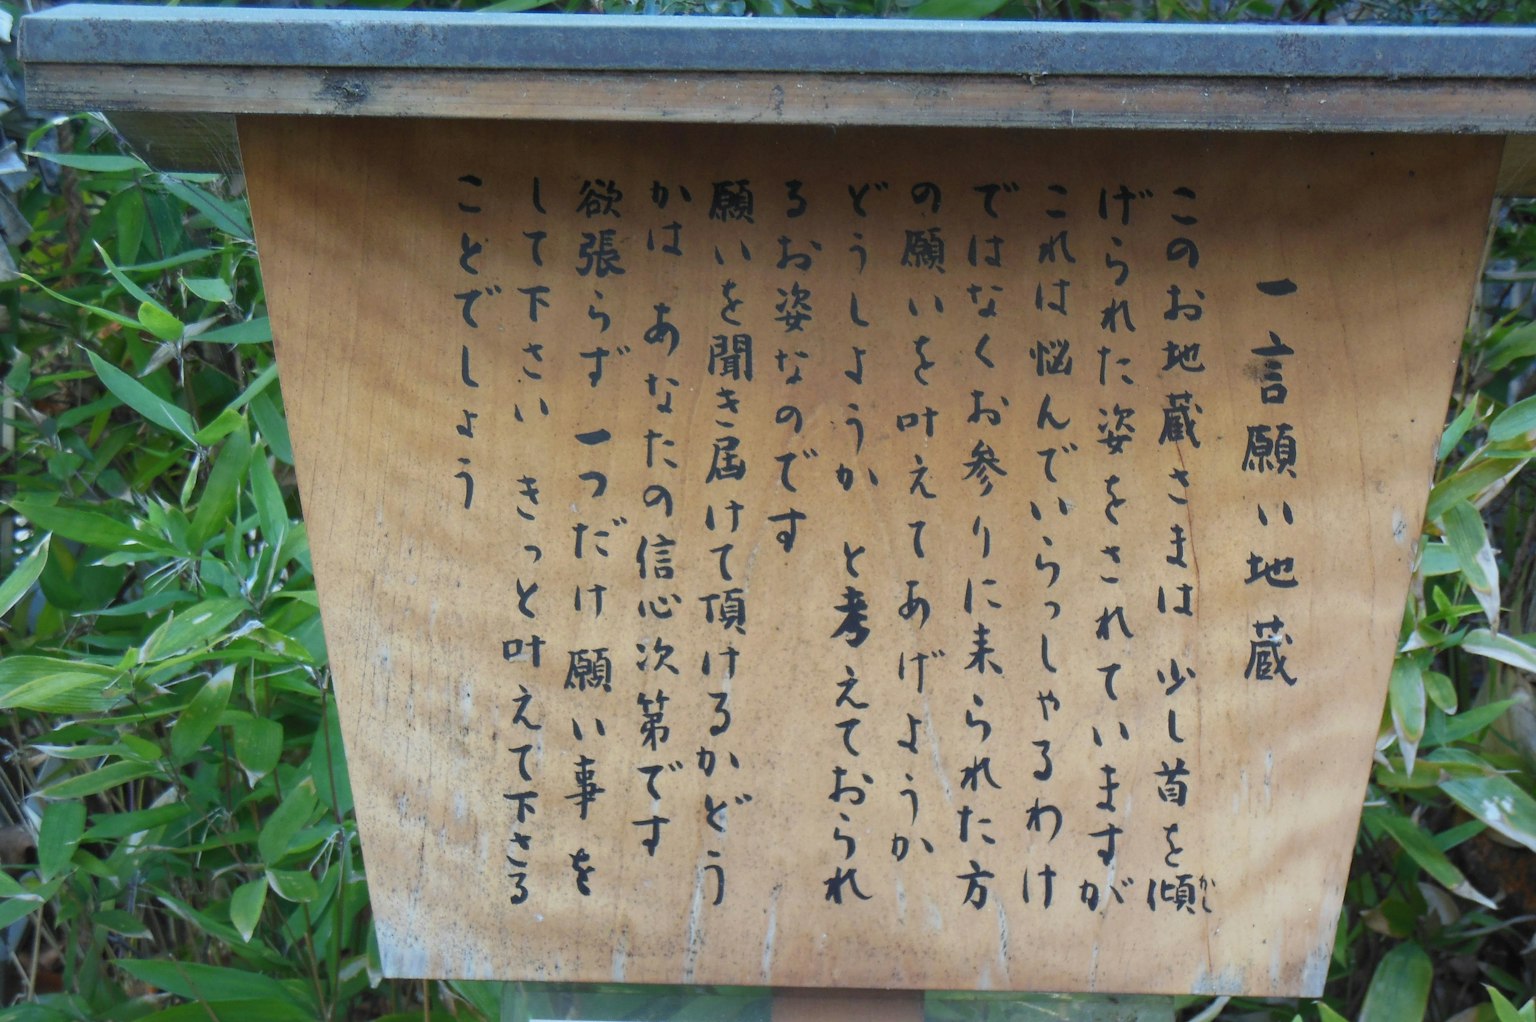 一言願い地蔵
このお地蔵さまは 少し首を傾
かし
げられた姿をされていますが
これは悩んでいらっしゃるわけ
ではなくお参りに来られた方
の願いを叶えてあげようか
どうしようか と考えておられ
るお姿なのです
願いを聞き届けて頂けるかどう
かは あなたの信心次第です
欲張らず 一つだけ願い事を
して下さい きっと叶えて下さる
ことでしょう